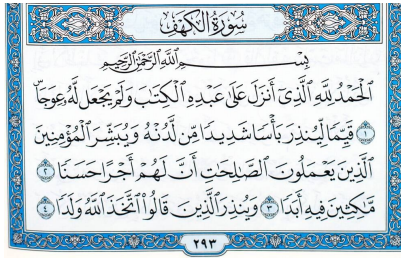 سُورَةُ الْكَهْفِ
بِسْمِ اللَّهِ الرَّحْمَٰنِ الرَّحِيمِ
الْحَمْدُ لِلَّهِ الَّذِي أَنزَلَ عَلَىٰ عَبْدِهِ الْكِتَٰبَ وَلَمْ يَجْعَل لَّهُۥ عِوَجًا
١ قَيِّمًا لِّيُنذِرَ بَأْسًا شَدِيدًا مِّن لَّدُنْهُ وَيُبَشِّرَ الْمُؤْمِنِينَ
الَّذِينَ يَعْمَلُونَ الصَّٰلِحَٰتِ أَنَّ لَهُمْ أَجْرًا حَسَنًا ٢
مَّٰكِثِينَ فِيهِ أَبَدًا ٣ وَيُنذِرَ الَّذِينَ قَالُوا۟ اتَّخَذَ اللَّهُ وَلَدًا ٤
٢٩٣